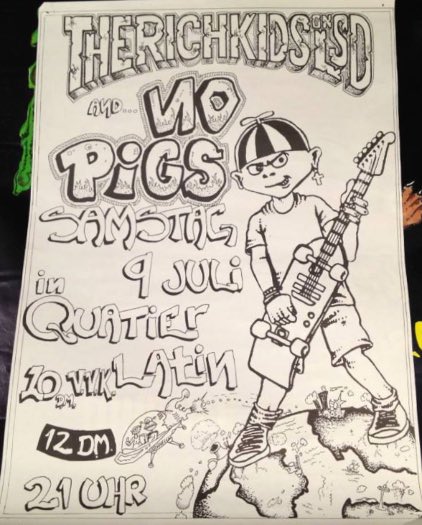 THE RICH KIDS ON LSD
AND... NO
PiGS
SAMSTAG,
9 JULi
in
QUATiER
LATin
10 DM. VVK.
12 DM.
21 UHR